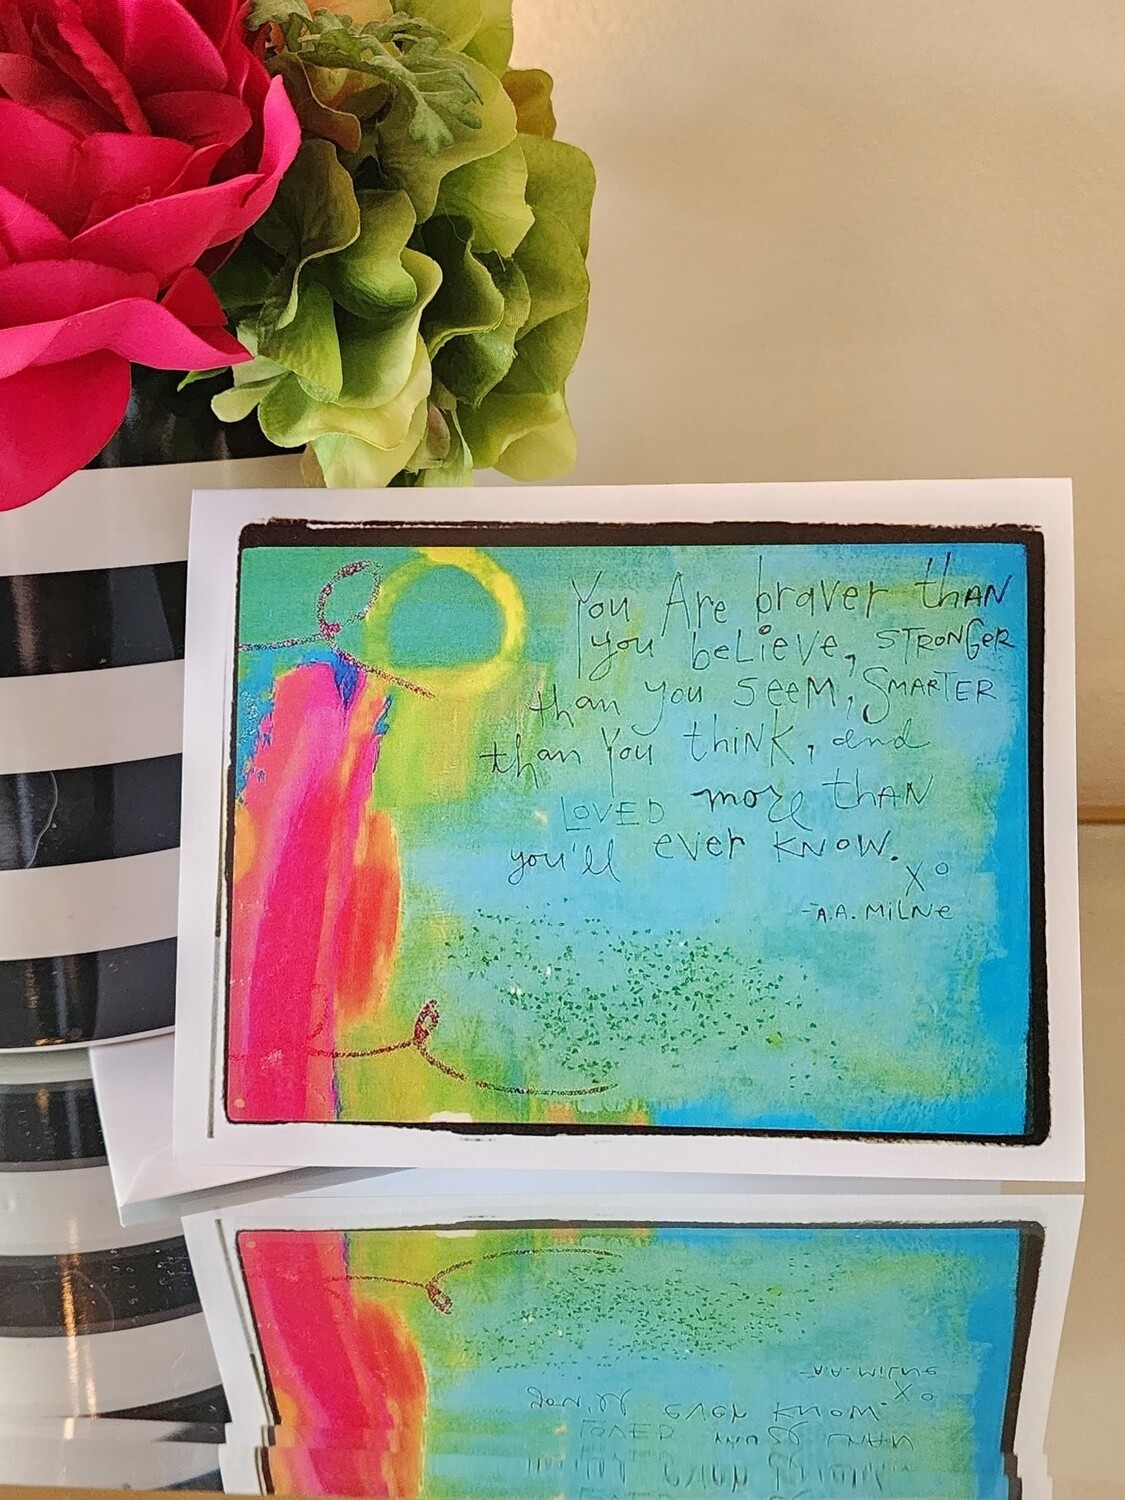 You Are braver than
you beLieve, STRONGER
than you SEEM, SMARTER
than You thiNK, and
LOVED more than
you'll ever KNOW.
XO
-A.A. MiLNe